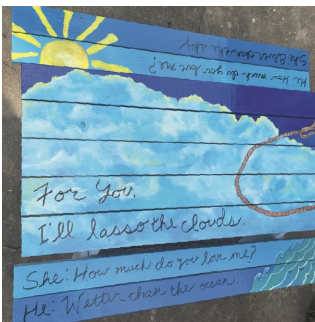 She: Bluer than the sky
He: How much do you love me?
For You,
I'll lasso the clouds.
She: How much do you love me?
He: Wetter than the ocean.